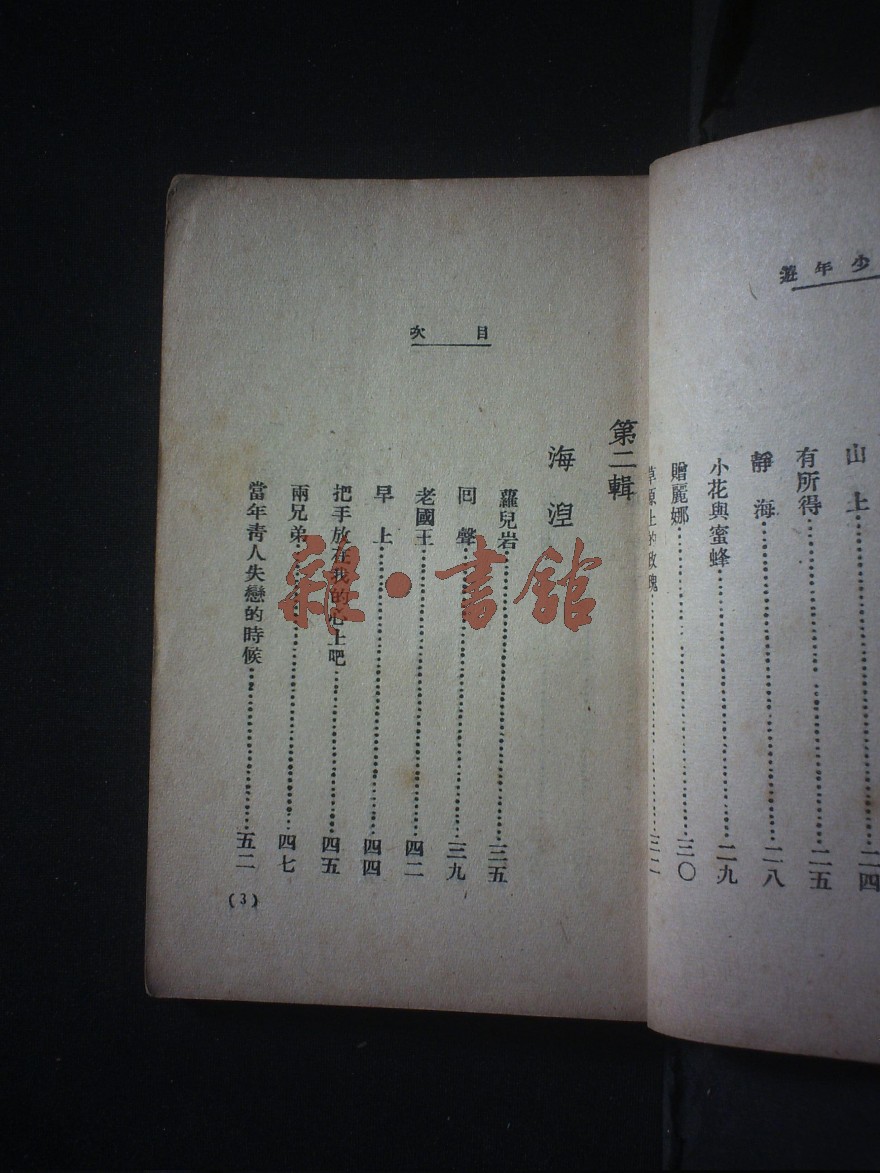 少年遊
山上……二四
有所得……二五
靜海……二八
小花與蜜蜂……二九
贈麗娜……三〇
草原上的玫瑰……三二
目次
第二輯
海涅
蘿兒岩……三五
回聲……三九
老國王……四二
早上……四四
把手放在我的心上吧……四五
兩兄弟……四七
當年青人失戀的時候……五二
(3)
雜·書館